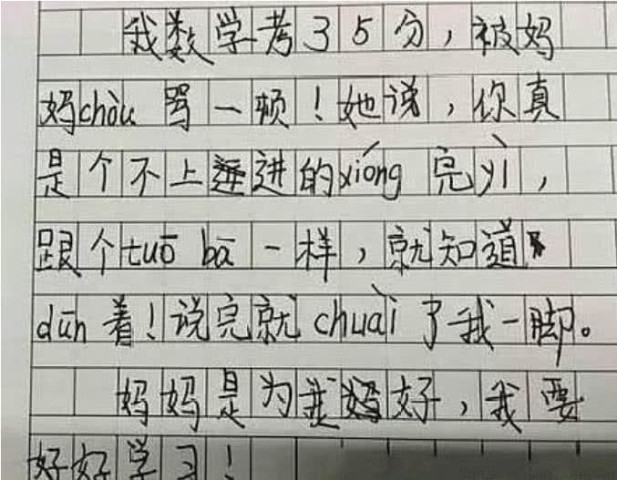 我数学考35分，被妈
妈chòu 骂一顿！她说，你真
是个不上进的xióng 完yì，
跟个tuō bā一样，就知道
dūn着！说完就chuài了我一脚。
妈妈是为我好，我要
好好学习！